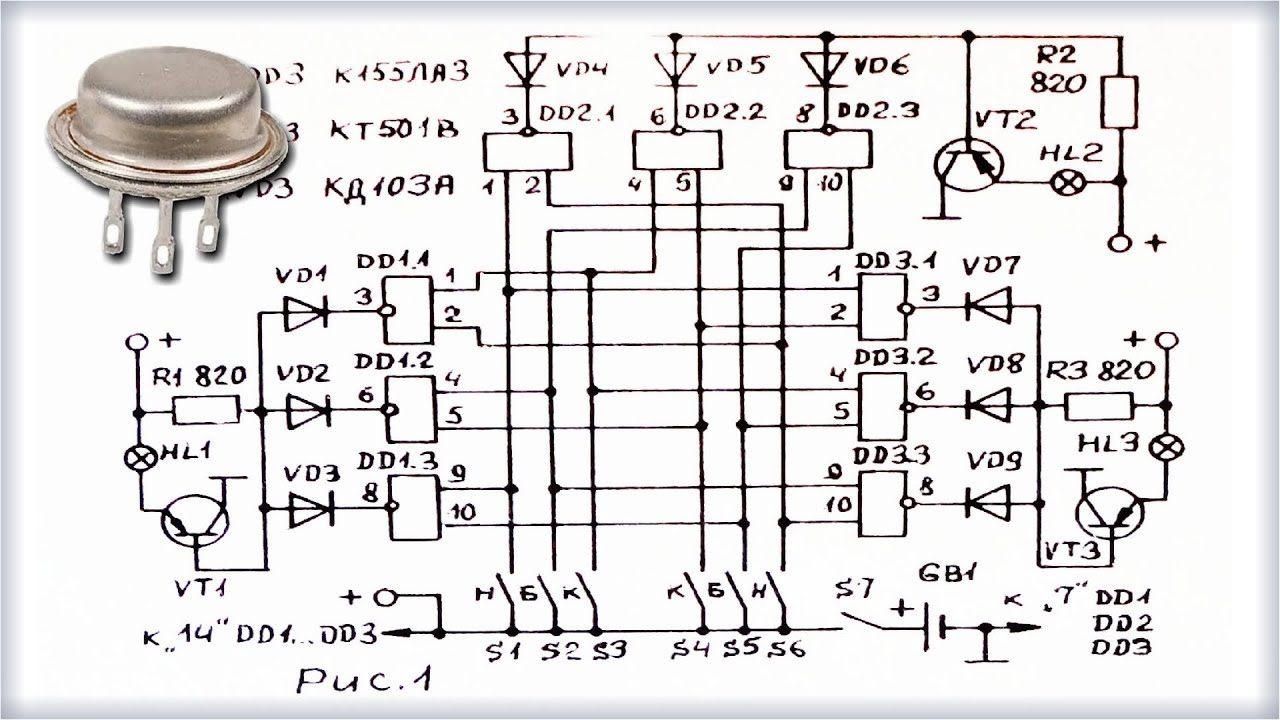 DD3 К155ЛАЗ
КТ501В
VD3 КД103А
VD4
VD5
VD6
R2
820
3 DD2.1
6 DD2.2
8 DD2.3
VT2
HL2
1 2
4 5
9 10
+
VD1
DD1.1
3
1
2
DD3.1
1
2
3
VD7
+
R1 820
VD2
DD1.2
6
4
5
DD3.2
4
5
6
VD8
+
R3 820
HL1
VD3
DD1.3
8
9
10
DD3.3
9
10
8
VD9
HL3
VT1
VT3
Н Б К
К Б Н
S7
+
GB1
к „7" DD1
DD2
DD3
+
К „14" DD1...DD3
S1 S2 S3 S4 S5 S6
Рис.1